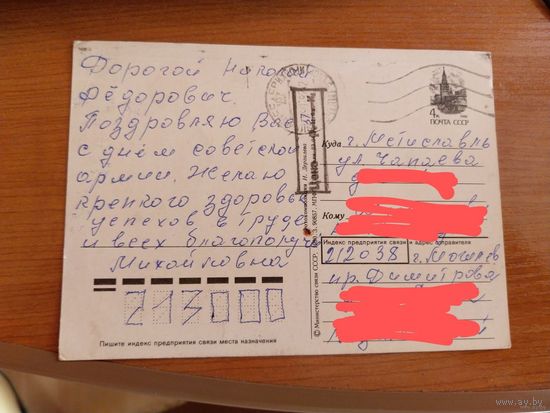 Дорогой
Фёдорович.
Поздравляю Вас
с днём советской
армии. Желаю
крепкого здоровья
успехов в труде
и всех благополуч
Михайловна
213000
Пишите индекс предприятия связи места назначения
4к
ПОЧТА СССР
Куда г. Мстиславль
ул. Чапаева
Кому
Индекс предприятия связи и адрес отправителя
212038 г. Могилев
пр. Димитрова
© Министерство связи СССР
www.ay.by